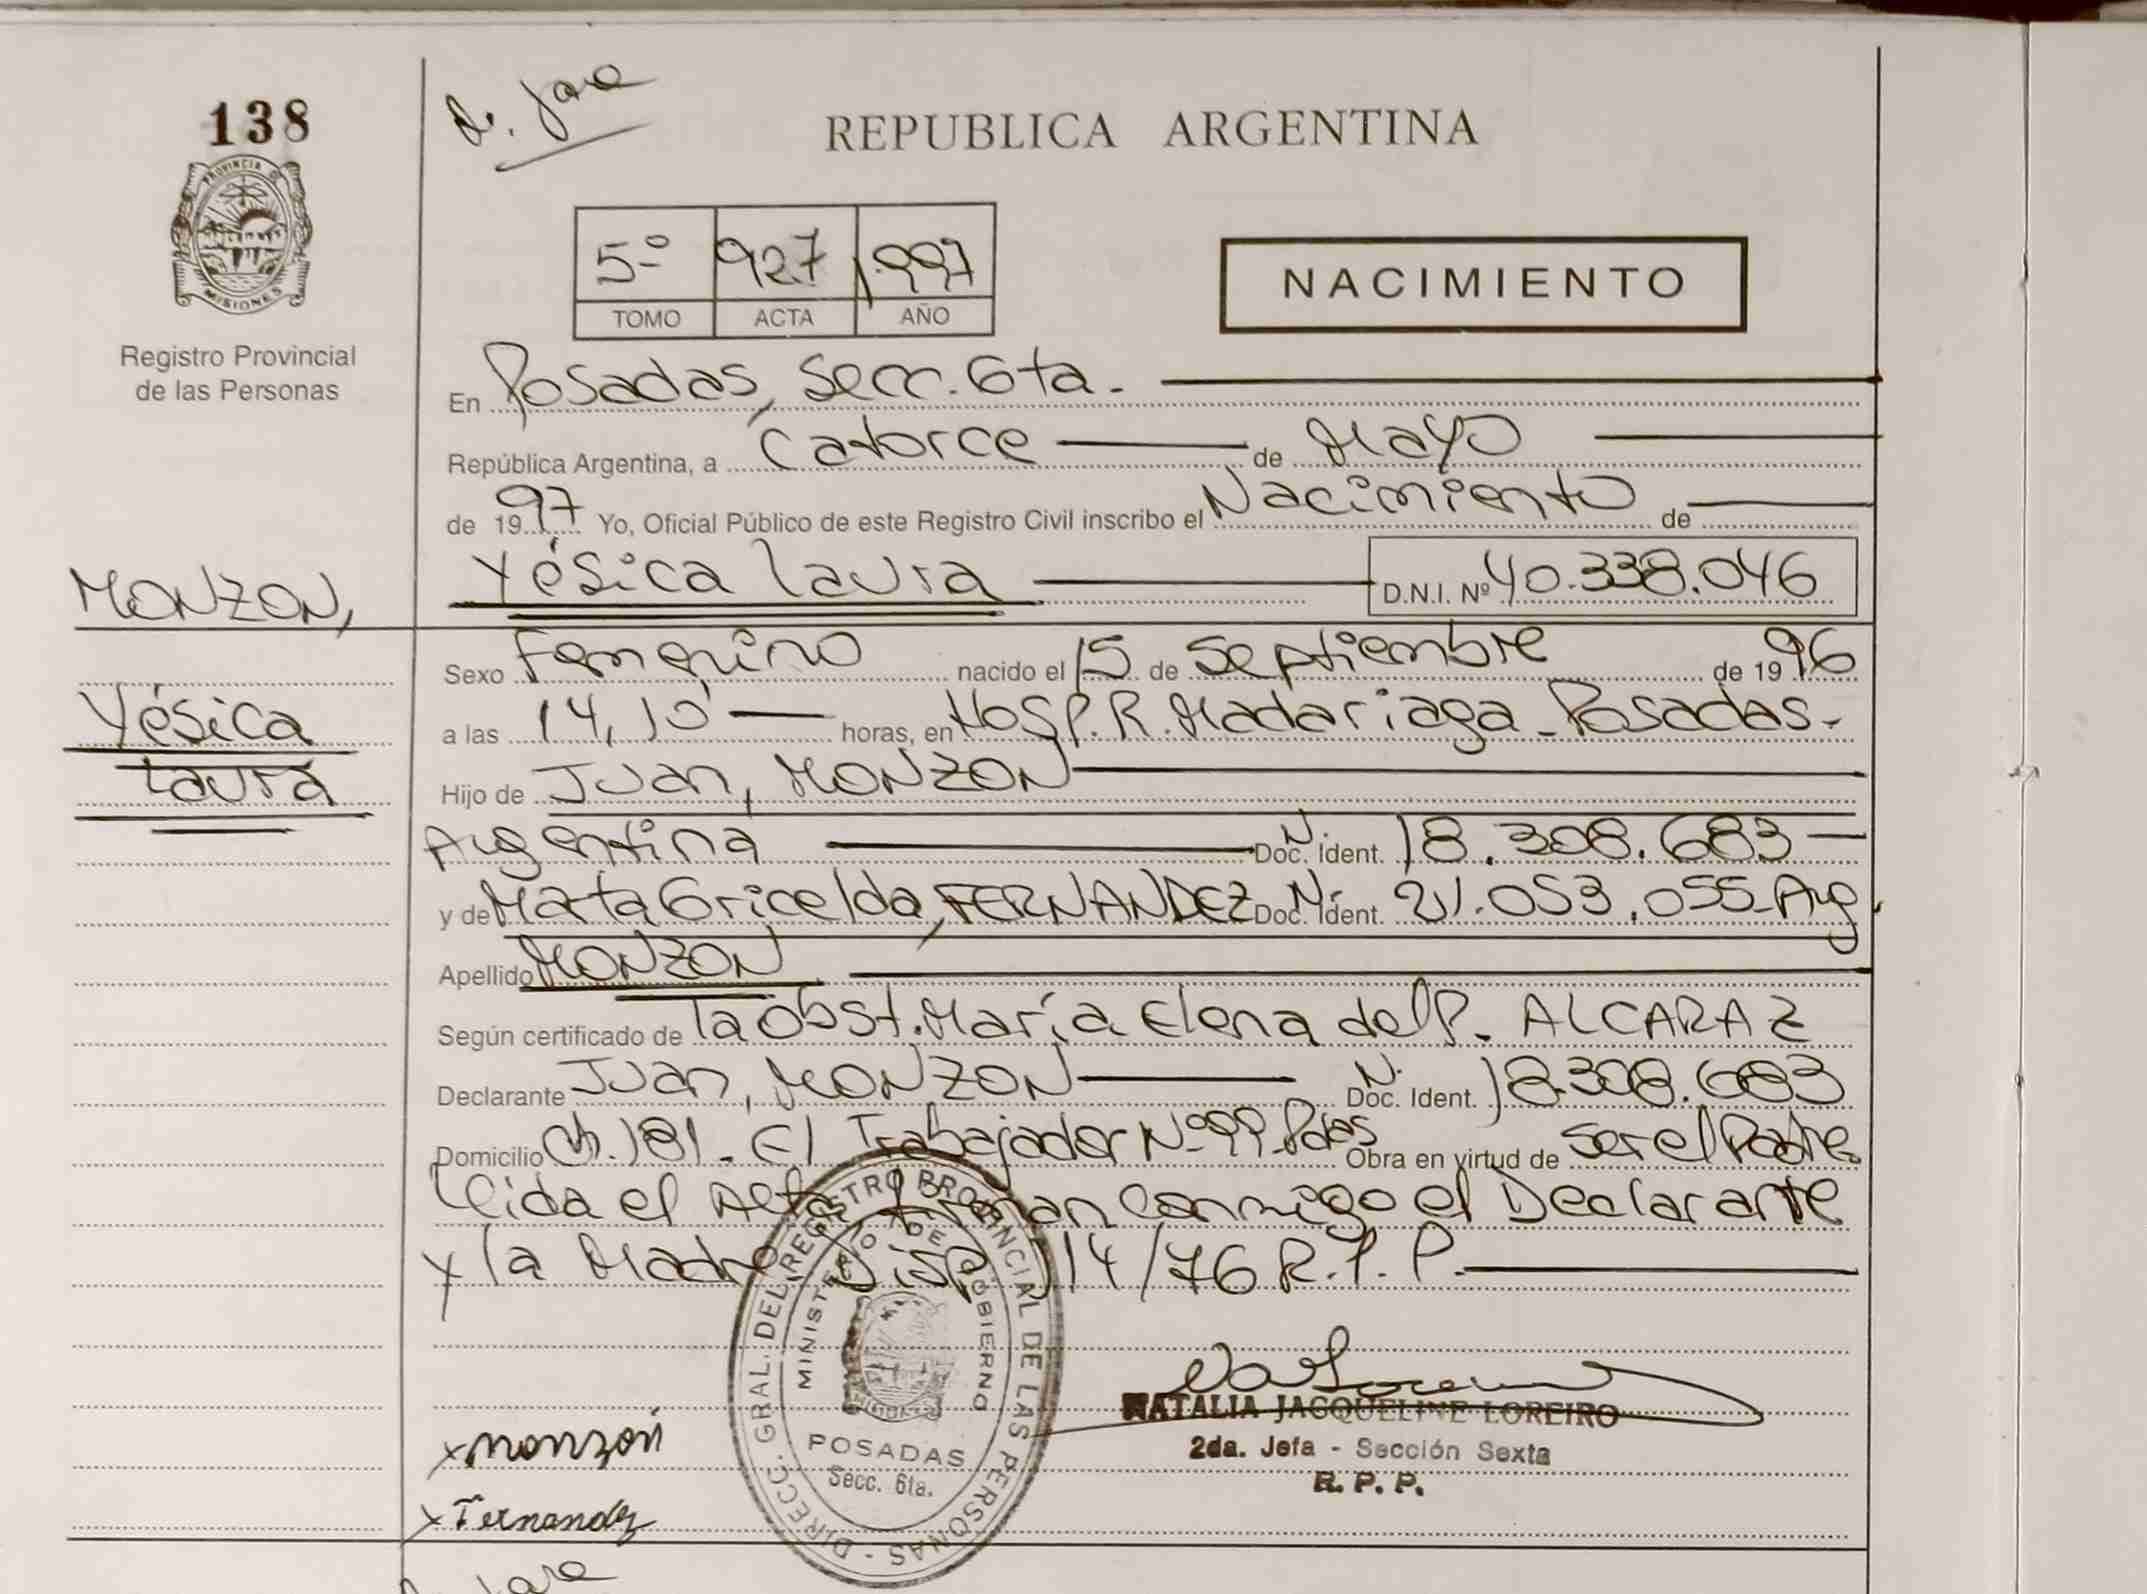 138
Dr. Jara
REPUBLICA ARGENTINA
PROVINCIA DE
MISIONES
5º 927 1.997
TOMO ACTA AÑO
NACIMIENTO
Registro Provincial
de las Personas
En Posadas, Secc. 6ta.
República Argentina, a Catorce de Mayo
de 1997 Yo, Oficial Público de este Registro Civil inscribo el Nacimiento de
Yésica Laura D.N.I. Nº 40.338.046
MONZON,
Yésica
Laura
Sexo Femenino nacido el 15 de Septiembre de 1996
a las 14,10' horas, en Hosp. R. Madariaga - Posadas.
Hijo de Juan, MONZON
Argentina Doc. Ident. N. 18.308.683
y de Marta Gricelda, FERNANDEZ Doc. Ident. N. 21.053.055 - Arg.
Apellido MONZON
Según certificado de la Obst. María Elena del P. ALCARAZ
Declarante Juan, MONZON Doc. Ident. N. 18.308.683
Domicilio Ch. 181 - El Trabajador Nº 99 - Pdas Obra en virtud de Ser el Padre
Leida el Acta firman conmigo el Declarante
y la Madre Disp. 14/76 R.P.P.
DIRECC. GRAL. DEL REGISTRO PROVINCIAL DE LAS PERSONAS
MINISTERIO DE GOBIERNO
POSADAS
Secc. 6ta.
NATALIA JACQUELINE LOREIRO
2da. Jefa - Sección Sexta
R. P. P.
x Monzón
x Fernandez
Jara